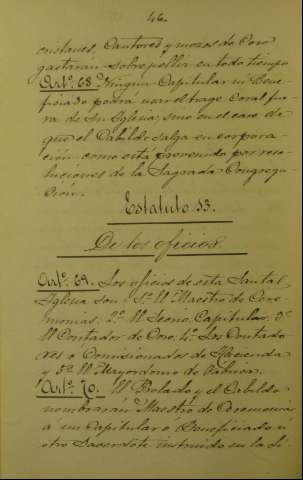 46.
cristanes, Cantores y mozos de Coro
gastarán sobrepelliz en todo tiempo
Artº. 68. Ningun Capitular ni Bene-
ficiado podrá usar el trage Coral fue-
ra de Su Iglesia, sino en el caso de
que el Cabildo salga en corpora-
ción como está prevenido por reso-
luciones de la Sagrada Congrega-
ción.
Estatuto 13.
De los oficios
Artº. 69. Los oficios de esta Santa
Iglesia son: 1º El Maestro de Cere-
monias: 2º El Secreº. Capitular: 3º
El Contador de Coro: 4º Los Contado-
res o Comisionados de Hacienda
y 5º El Mayordomo de Fabrica.
Artº. 70. El Prelado y el Cabildo
nombrarán Maestro de Ceremonias
á un Capitular o Beneficiado ú
otro Sacerdote instruido en la Li-